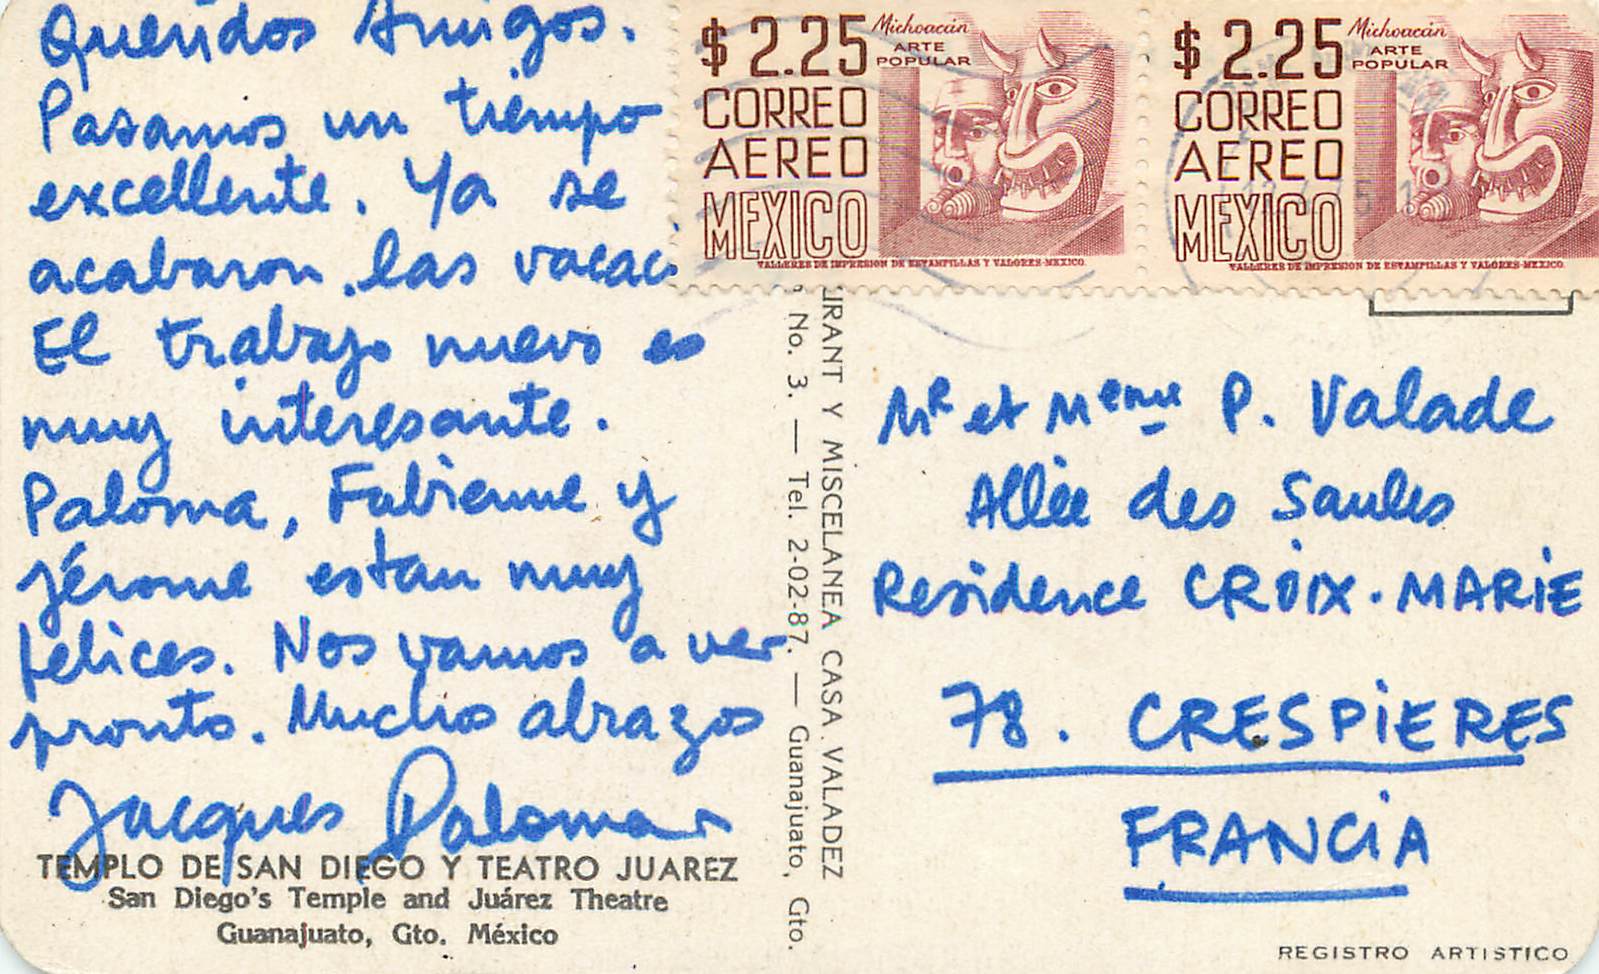 Queridos Amigos.
Pasamos un tiempo
excellente. Ya se
acabaron las vacaci
El trabajo nuevo es
muy interesante.
Paloma, Fabienne y
Jérome estan muy
felices. Nos vamos a ver
pronto. Mucho abrazos
Jacques Paloma
TEMPLO DE SAN DIEGO Y TEATRO JUAREZ
San Diego's Temple and Juárez Theatre
Guanajuato, Gto. México
$2.25
CORREO
AEREO
MEXICO
Michoacán
ARTE
POPULAR
TALLERES DE IMPRESION DE ESTAMPILLAS Y VALORES-MEXICO.
$2.25
CORREO
AEREO
MEXICO
Michoacán
ARTE
POPULAR
TALLERES DE IMPRESION DE ESTAMPILLAS Y VALORES-MEXICO.
RANT Y MISCELANEA CASA VALADEZ
No. 3. — Tel. 2-02-87. — Guanajuato, Gto.
Mr et Meme P. Valade
Allée des Saules
Residence CROIX-MARIE
78. CRESPIERES
FRANCIA
REGISTRO ARTISTICO